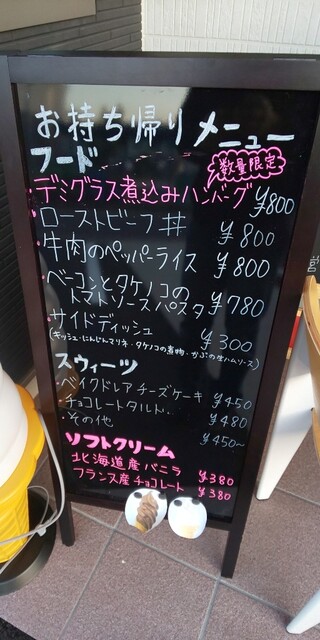 お持ち帰りメニュー
フード
数量限定
・デミグラス煮込みハンバーグ ¥800
・ローストビーフ丼 ¥800
・牛肉のペッパーライス ¥800
・ベーコンとタケノコの
トマトソースパスタ ¥780
・サイドディッシュ ¥300
(キッシュ・にんじんマリネ・タケノコの煮物・かぶの生ハムソース)
スウィーツ
・ベイクドレアチーズケーキ ¥450
・チョコレートタルト. ¥480
・その他 ¥450~
ソフトクリーム
北海道産バニラ ¥380
フランス産チョコレート ¥380